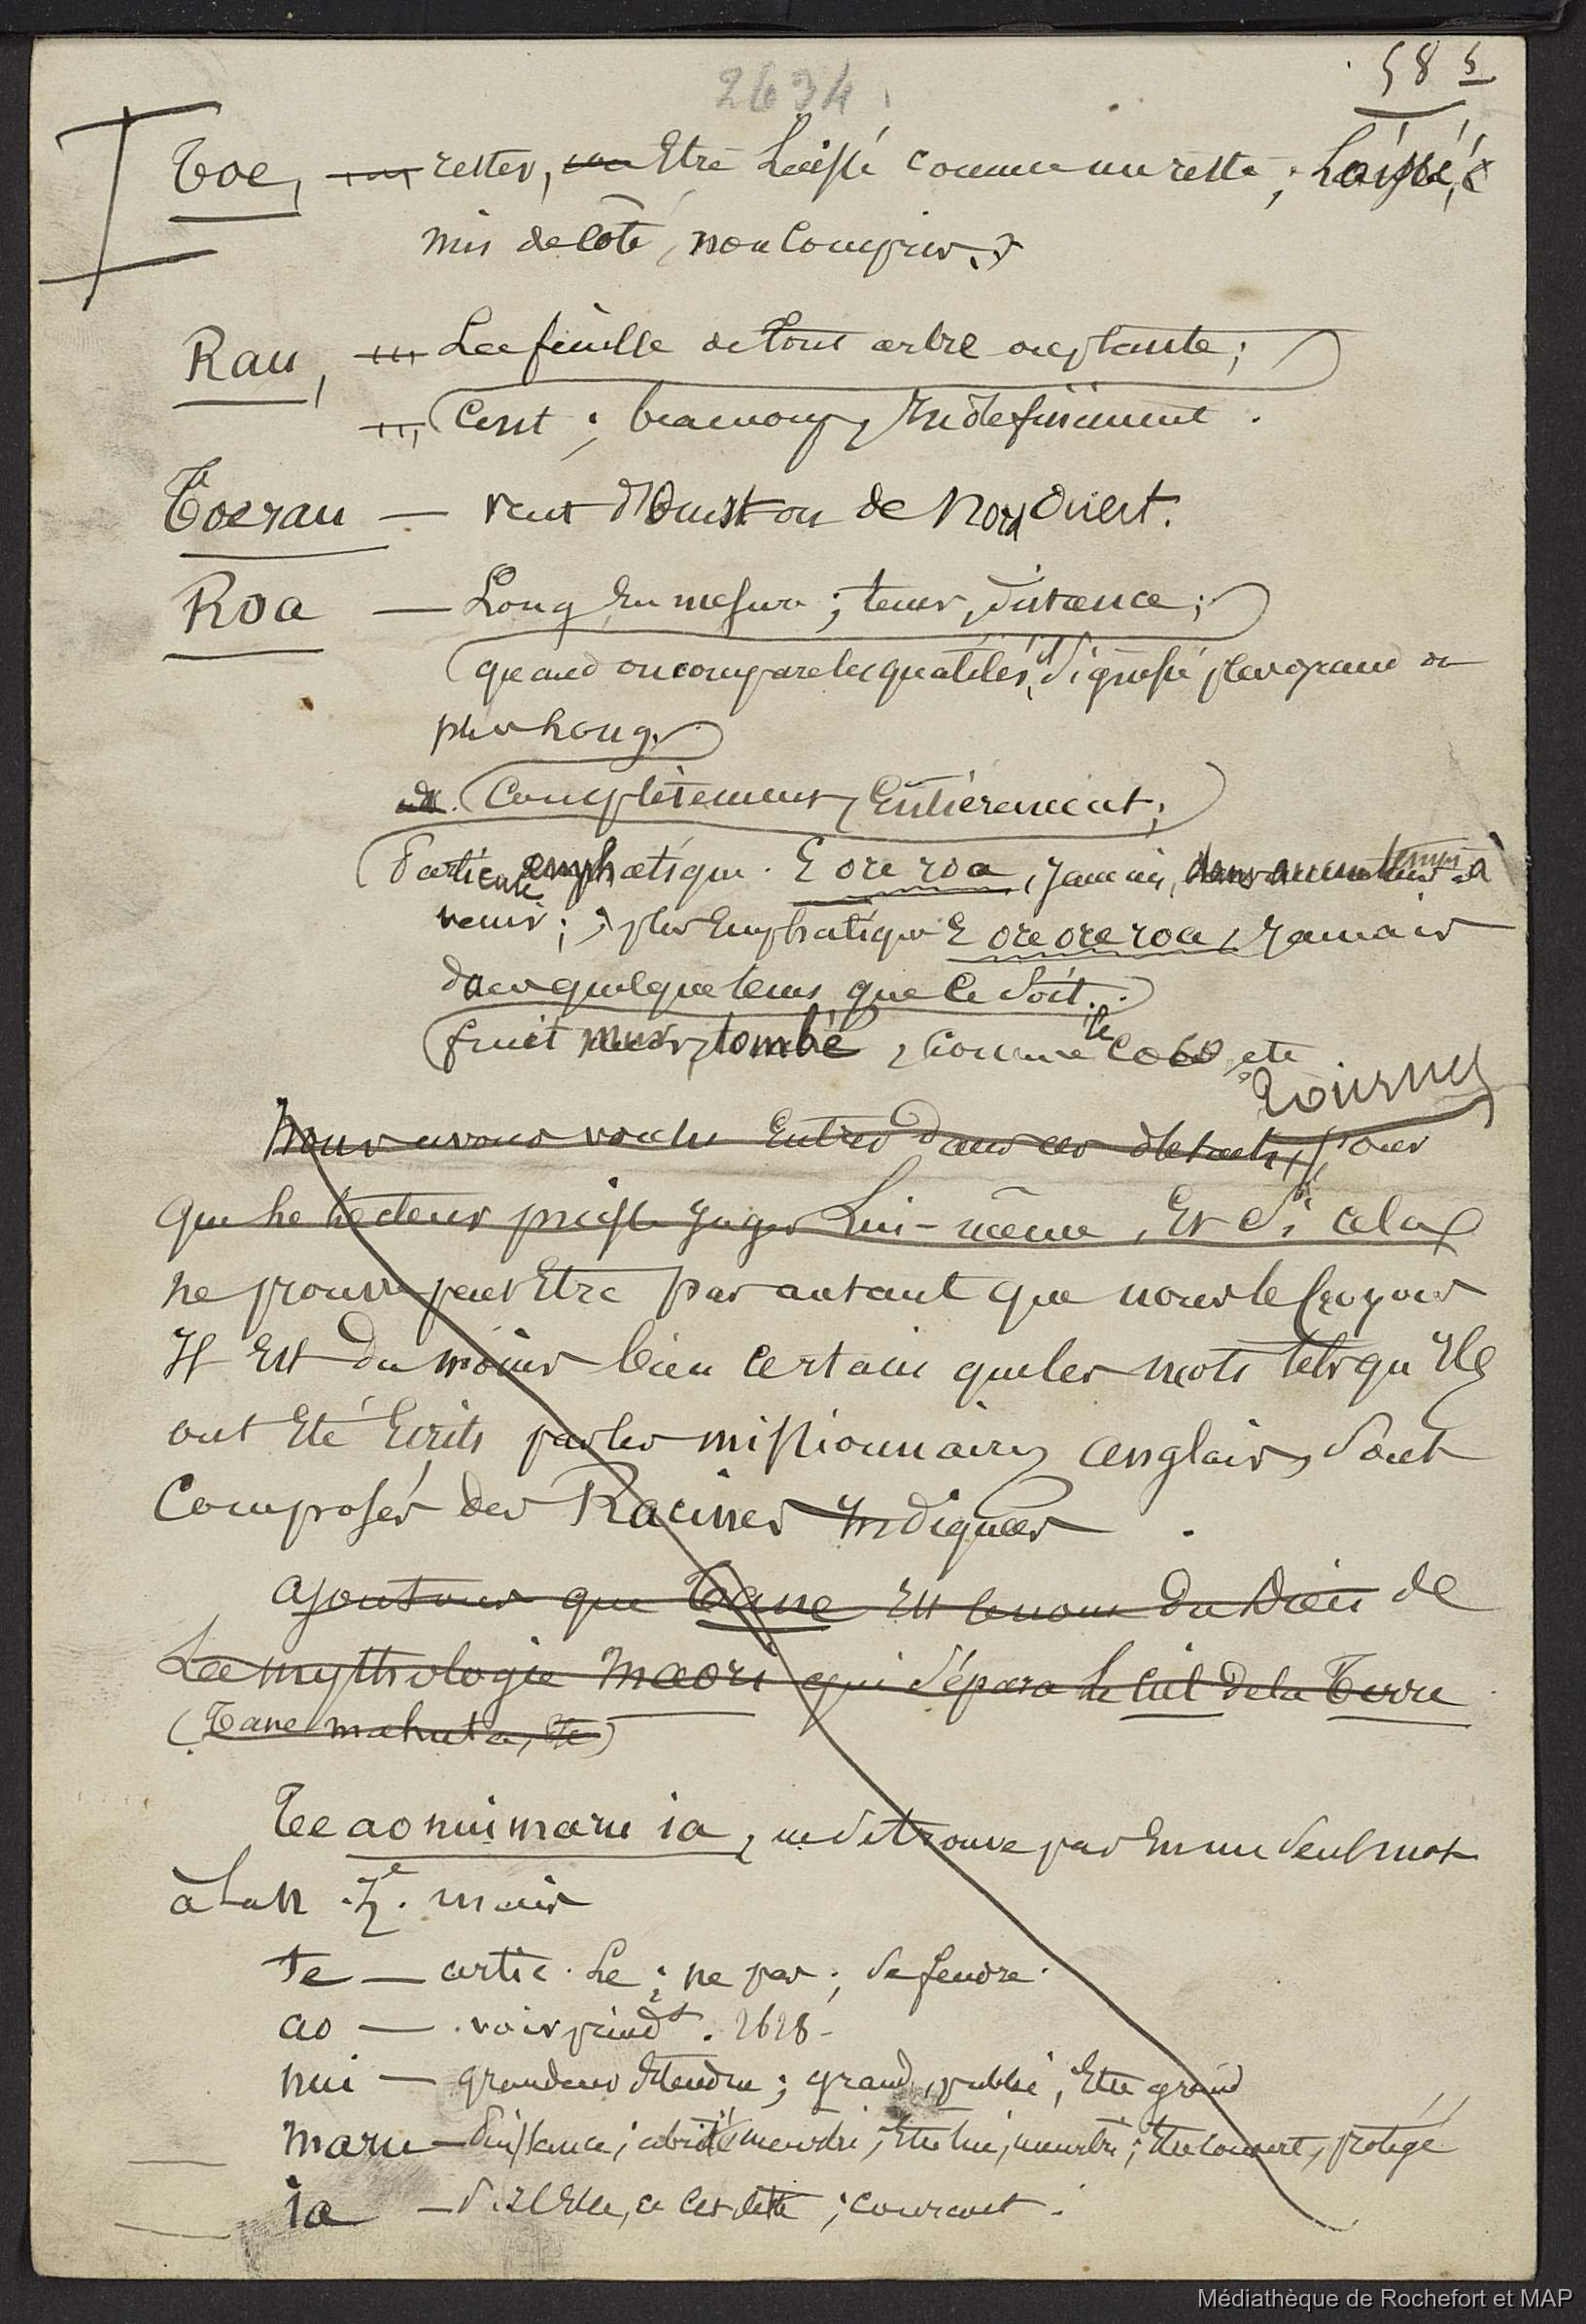 2634.
58 5
Toe, rester, Etre Laissé comme un reste; Laissé,
mis de coté, non compris.
Rau, La feuille de tout arbre ou plante;
Cent; beaucoup, Indefiniment.
Toerau — vent d'Ouest ou de Nord Ouest.
Roa — Long En mesure; tems, distance;
quand on compare les qualités, il signifie plus grand ou
plus Long.
Complètement, Entièrement;
Particule emphatique. E ore roa, Jamais, dans aucun temps à
venir; plus Emphatique E ore ore roa, Jamais
dans quelque tems que ce soit.
fruit mur, tombé, comme le coco etc
tournez
Nous avons voulu Entrer dans ces details, pour
que Le Lecteur puisse Juger Lui-même, Et Si cela
ne prouve peut Etre pas autant que nous le croyons
Il Est du moins bien certain que les mots tels qu'Ils
ont Eté Ecrits par les missionnaires anglais, sont
composés des Racines Indiquées.
ajoutons que Tane Est le nom du Dieu de
La mythologie maori qui sépara Le Ciel de la Terre
(Tane mahuta, etc)
Te ao nui maru ia, ne se trouve pas En un seul mot
à La N. Z. mais
te — artic. Le; ne pas; se fendre.
ao — voir précéd.t 2628 -
nui — grandeur Etendue; grand, publié, Etre grand
maru — Puissance; abrité meurdri; Etre tué, meurtri; Etre couvert, protégé
ia — Il Elle, ce cet cette; courant.
Médiathèque de Rochefort et MAP